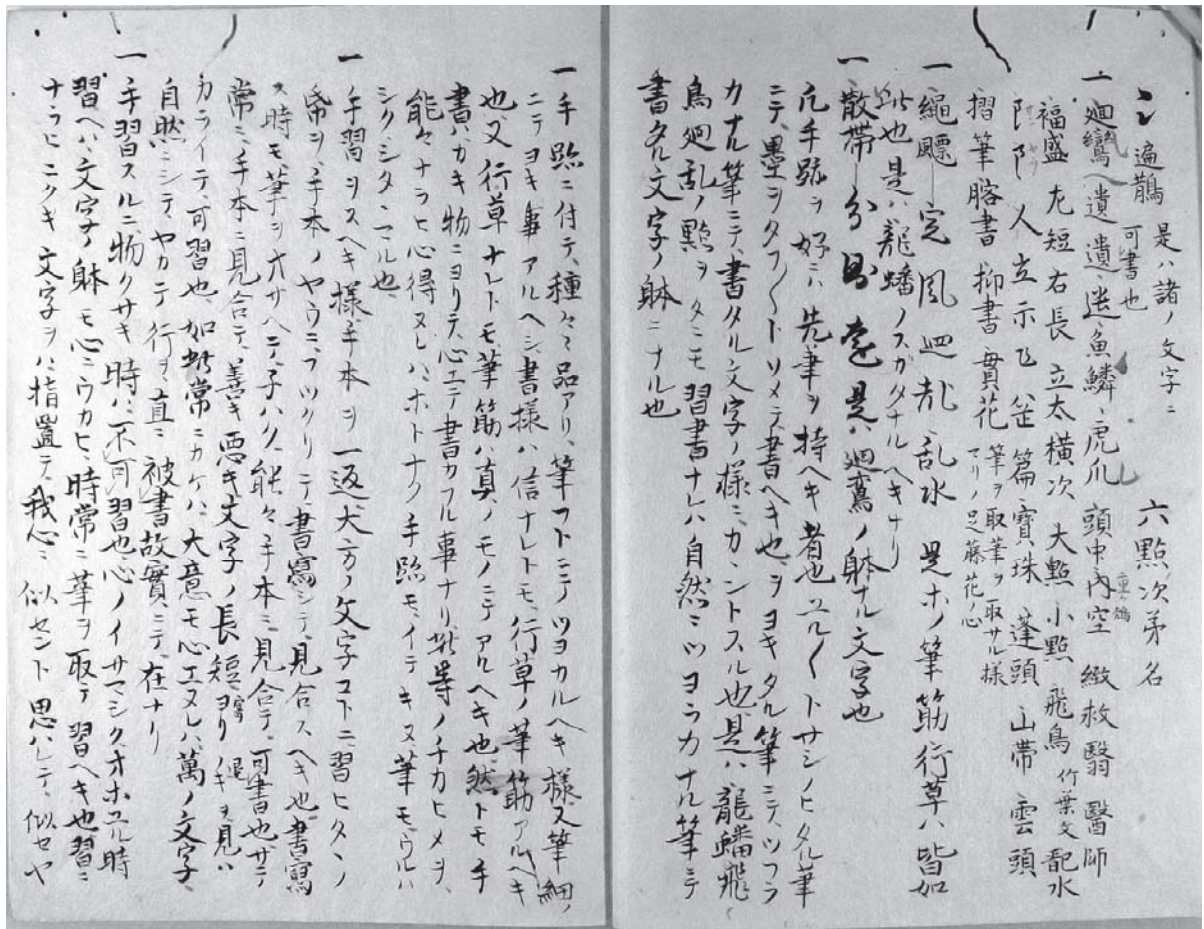 遍鵲 是ハ諸ノ文字ニ可書也 六點次第名
一 廻鸞ヘ遺 遺 遊魚鱗 虎爪 頭中內空 緻救醫 醫師
福盛 尤短右長 立太横次 大點 小點 飛鳥 竹葉文 配水
人立示 篇 寶珠 蓬頭 山帯 雲頭
摺筆 書 抑書 貫花 筆ヲ取筆ヲ取サル様 マリノ足藤花ノ心
一 繩飄 定 風廻乱 乱水 是ホノ筆筋行草ハ皆如
此也是ハ龍蟠ノスガタナルヘキナリ
一 散帯 是ハ廻鸞ノ躰ナル文字也
凡手跡ヲ好ニハ先筆ヲ持ヘキ者也ユル〱トサシノヒタル筆
ニテ墨ヲタフ〱トソメテ書ヘキ也ヲヨキタル筆ニテツフラ
カナル筆ニテ書タル文字ノ様ニカヽントスル也是ハ龍蟠飛
鳥廻乱ノ點ヲタニモ習書ナレハ自然ニツヨラカナル筆ニテ
書タル文字ノ躰ニナル也
一 手跡ニ付テ種々ニ品アリ筆フトニテツヨカルヘキ様又筆細ノ
ニテヨキ事アルヘシ書様ハ信ナレトモ行草ノ筆筋アルヘキ
也又行草ナレトモ筆筋ハ真ノモノニテアルヘキ也然トモ手
書ハカキ物ニヨリテ心エテ書カフル事ナリ此等ノチカヒメヲ
能々ナラヒ心得ヌレハホトナク手跡モイテキヌ筆モウルハ
シクシタヽマル也
一 手習ヲスヘキ様手本ヲ一返大方ノ文字コトニ習ヒタヽノ
帋ヲ手本ノヤウニツクリニテ書寫シテ見合スヘキ也書寫
ス時モ筆ヲオサヘニテ子ハク能々手本ニ見合テ可書也サテ
常ニ手本ニ見合テ善キ悪キ文字ノ長短ヨリ ヲ見ハ
カライテ可習也如此常ニカケハ大意モ心エヌレハ萬ノ文字
自然ニシテヤカテ行ヲ直ニ被書故實ニテ在ナリ
一 手習スルニ物クサキ時ハ不可習也心ノイサマシクオホユル時
習ヘハ文字ノ躰モ心ニウカヒ時常ニ筆ヲ取テ習ヘキ也習ニ
ナラヒニクキ文字ヲハ指置テ我心ニ似セント思ハレテ似セヤ